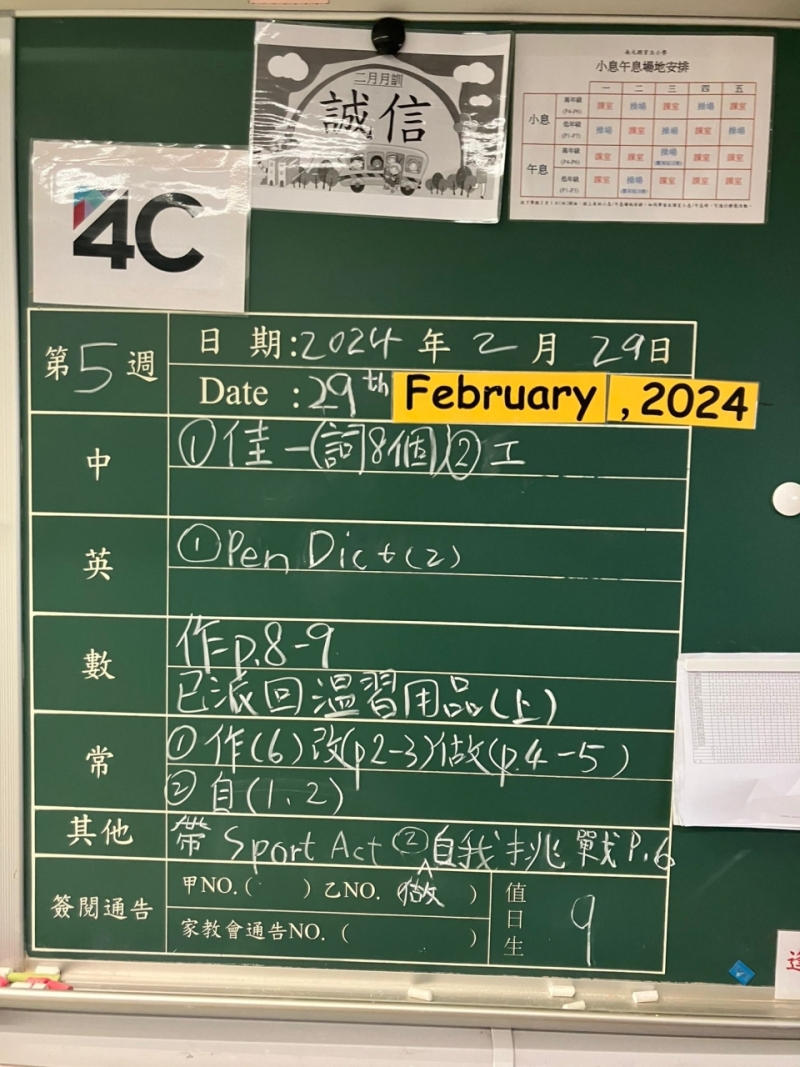 二月月訓
誠信
小息午息場地安排
一 二 三 四 五
小息 高年級 (P4-P6) 課室 操場 課室 操場 課室
低年級 操場 課室 操場 課室 操場
午息 高年級 (P4-P6) 課室 課室 操場 課室 課室
低年級 課室 操場 課室 課室 課室
4C
第5週
日期:2024年2月29日
Date :29th February , 2024
中 ①佳一(詞8個)②工
英 ①Pen Dict(2)
數 作p.8-9
已派回溫習用品(上)
常 ①作(6)改(p2-3)做(p.4-5)
②自(1、2)
其他 帶 Sport Act ②做自我挑戰P.6
簽閱通告 甲NO.( ) 乙NO.( )
家教會通告NO.( )
值日生 9